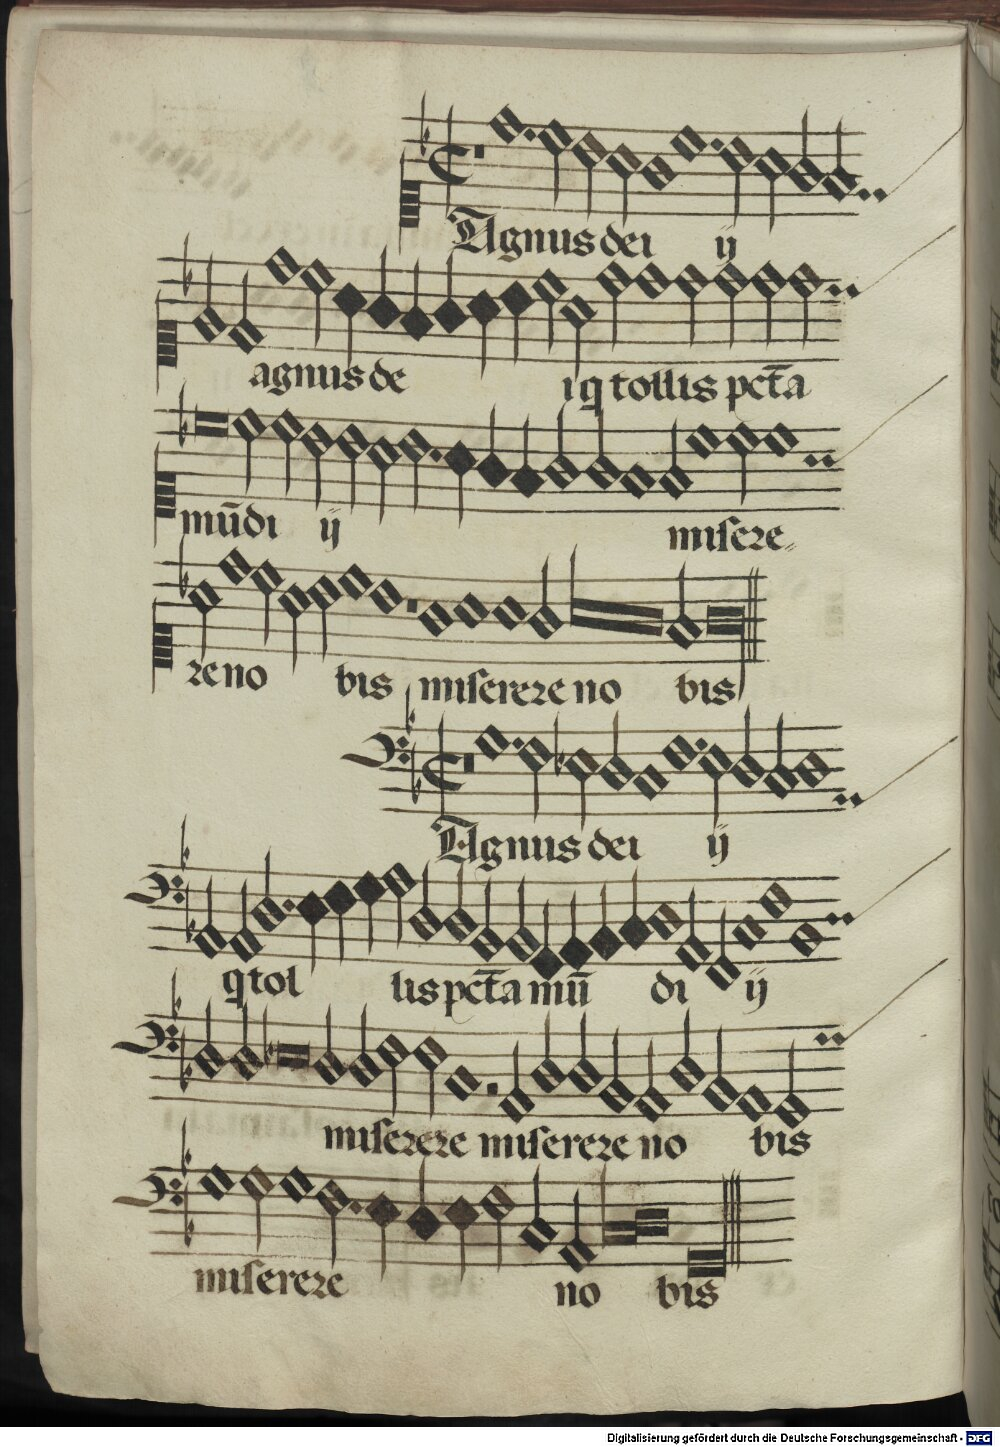 Agnus dei ij
agnus de i q tollis pct̄a
mūdi ij misere
re no bis miserere no bis
Agnus dei ij
q tol lis pct̄a mū di ij
miserere miserere no bis
miserere no bis
Digitalisierung gefördert durch die Deutsche Forschungsgemeinschaft - DFG